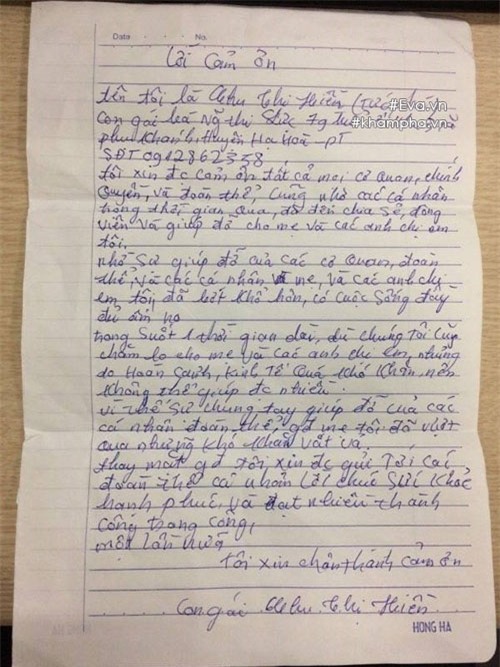 Date No.
Lời cảm ơn
#Eva.vn
#khampha.vn
tên tôi là Chu Thị Hiền
con gái bà Ng thị Sức 79 tuổi
phú Khánh, Huyện Hạ Hoà - PT
SĐT 0912862338
tôi xin đc cảm ơn tất cả mọi cơ quan, chính
quyền, và đoàn thể, cũng như các cá nhân
trong thời gian qua, đã đến chia sẻ, động
viên và giúp đỡ cho mẹ và các anh chị em
tôi.
nhờ sự giúp đỡ của các cơ quan, đoàn
thể, và các cá nhân mà mẹ, và các anh chị
em tôi đã bớt khổ hơn, có cuộc sống đầy
đủ ấm no
trong suốt 1 thời gian dài, dù chúng tôi cũng
chăm lo cho mẹ và các anh chị em, nhưng
do Hoàn cảnh, kinh Tế Quá khó khăn nên
không thể giúp đc nhiều.
vì thế sự chung tay giúp đỡ của các
cá nhân đoàn thể, gđ mẹ tôi đã vượt
qua những khó khăn vất vả,
thay mặt gđ tôi xin đc gửi Tới các
đoàn thể cá nhân lời chúc sức khoẻ
hạnh phúc, và đạt nhiều thành
công trong công,
một lần nữa
tôi xin chân thành cảm ơn
con gái Chu Thị Hiền
HONG HA